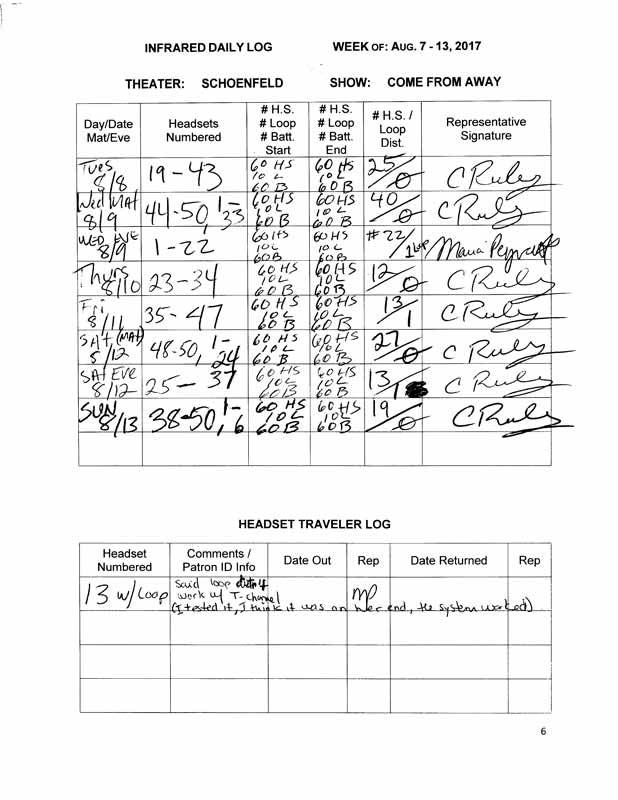 INFRARED DAILY LOG WEEK OF: AUG. 7 - 13, 2017
THEATER: SCHOENFELD SHOW: COME FROM AWAY
Day/Date Mat/Eve | Headsets Numbered | # H.S. # Loop # Batt. Start | # H.S. # Loop # Batt. End | # H.S. / Loop Dist. | Representative Signature
Tues 8/8 | 19-43 | 60 HS 10 L 60 B | 60 HS 10 L 60 B | 25/0 | C Ruley
Wed MAT 8/9 | 44-50, 1-33 | 60 HS 10 L 60 B | 60 HS 10 L 60 B | 40/0 | C Ruley
WED EVE 8/9 | 1-22 | 60 HS 10 L 60 B | 60 HS 10 L 60 B | #22/1 loop | Maria
Thurs 8/10 | 23-34 | 60 HS 10 L 60 B | 60 HS 10 L 60 B | 12/0 | C Ruley
Fri 8/11 | 35-47 | 60 HS 10 L 60 B | 60 HS 10 L 60 B | 13/1 | C Ruley
SAT (MAT) 8/12 | 48-50, 1-24 | 60 HS 10 L 60 B | 60 HS 10 L 60 B | 27/0 | C Ruley
SAT EVE 8/12 | 25-37 | 60 HS 10 L 60 B | 60 HS 10 L 60 B | 13/1 | C Ruley
SUN 8/13 | 38-50, 1-6 | 60 HS 10 L 60 B | 60 HS 10 L 60 B | 19/0 | C Ruley
HEADSET TRAVELER LOG
Headset Numbered | Comments / Patron ID Info | Date Out | Rep | Date Returned | Rep
13 w/Loop | Said loop didn't work w/ T-channel | MP
(I tested it, I think it was on her end, the system worked)
6